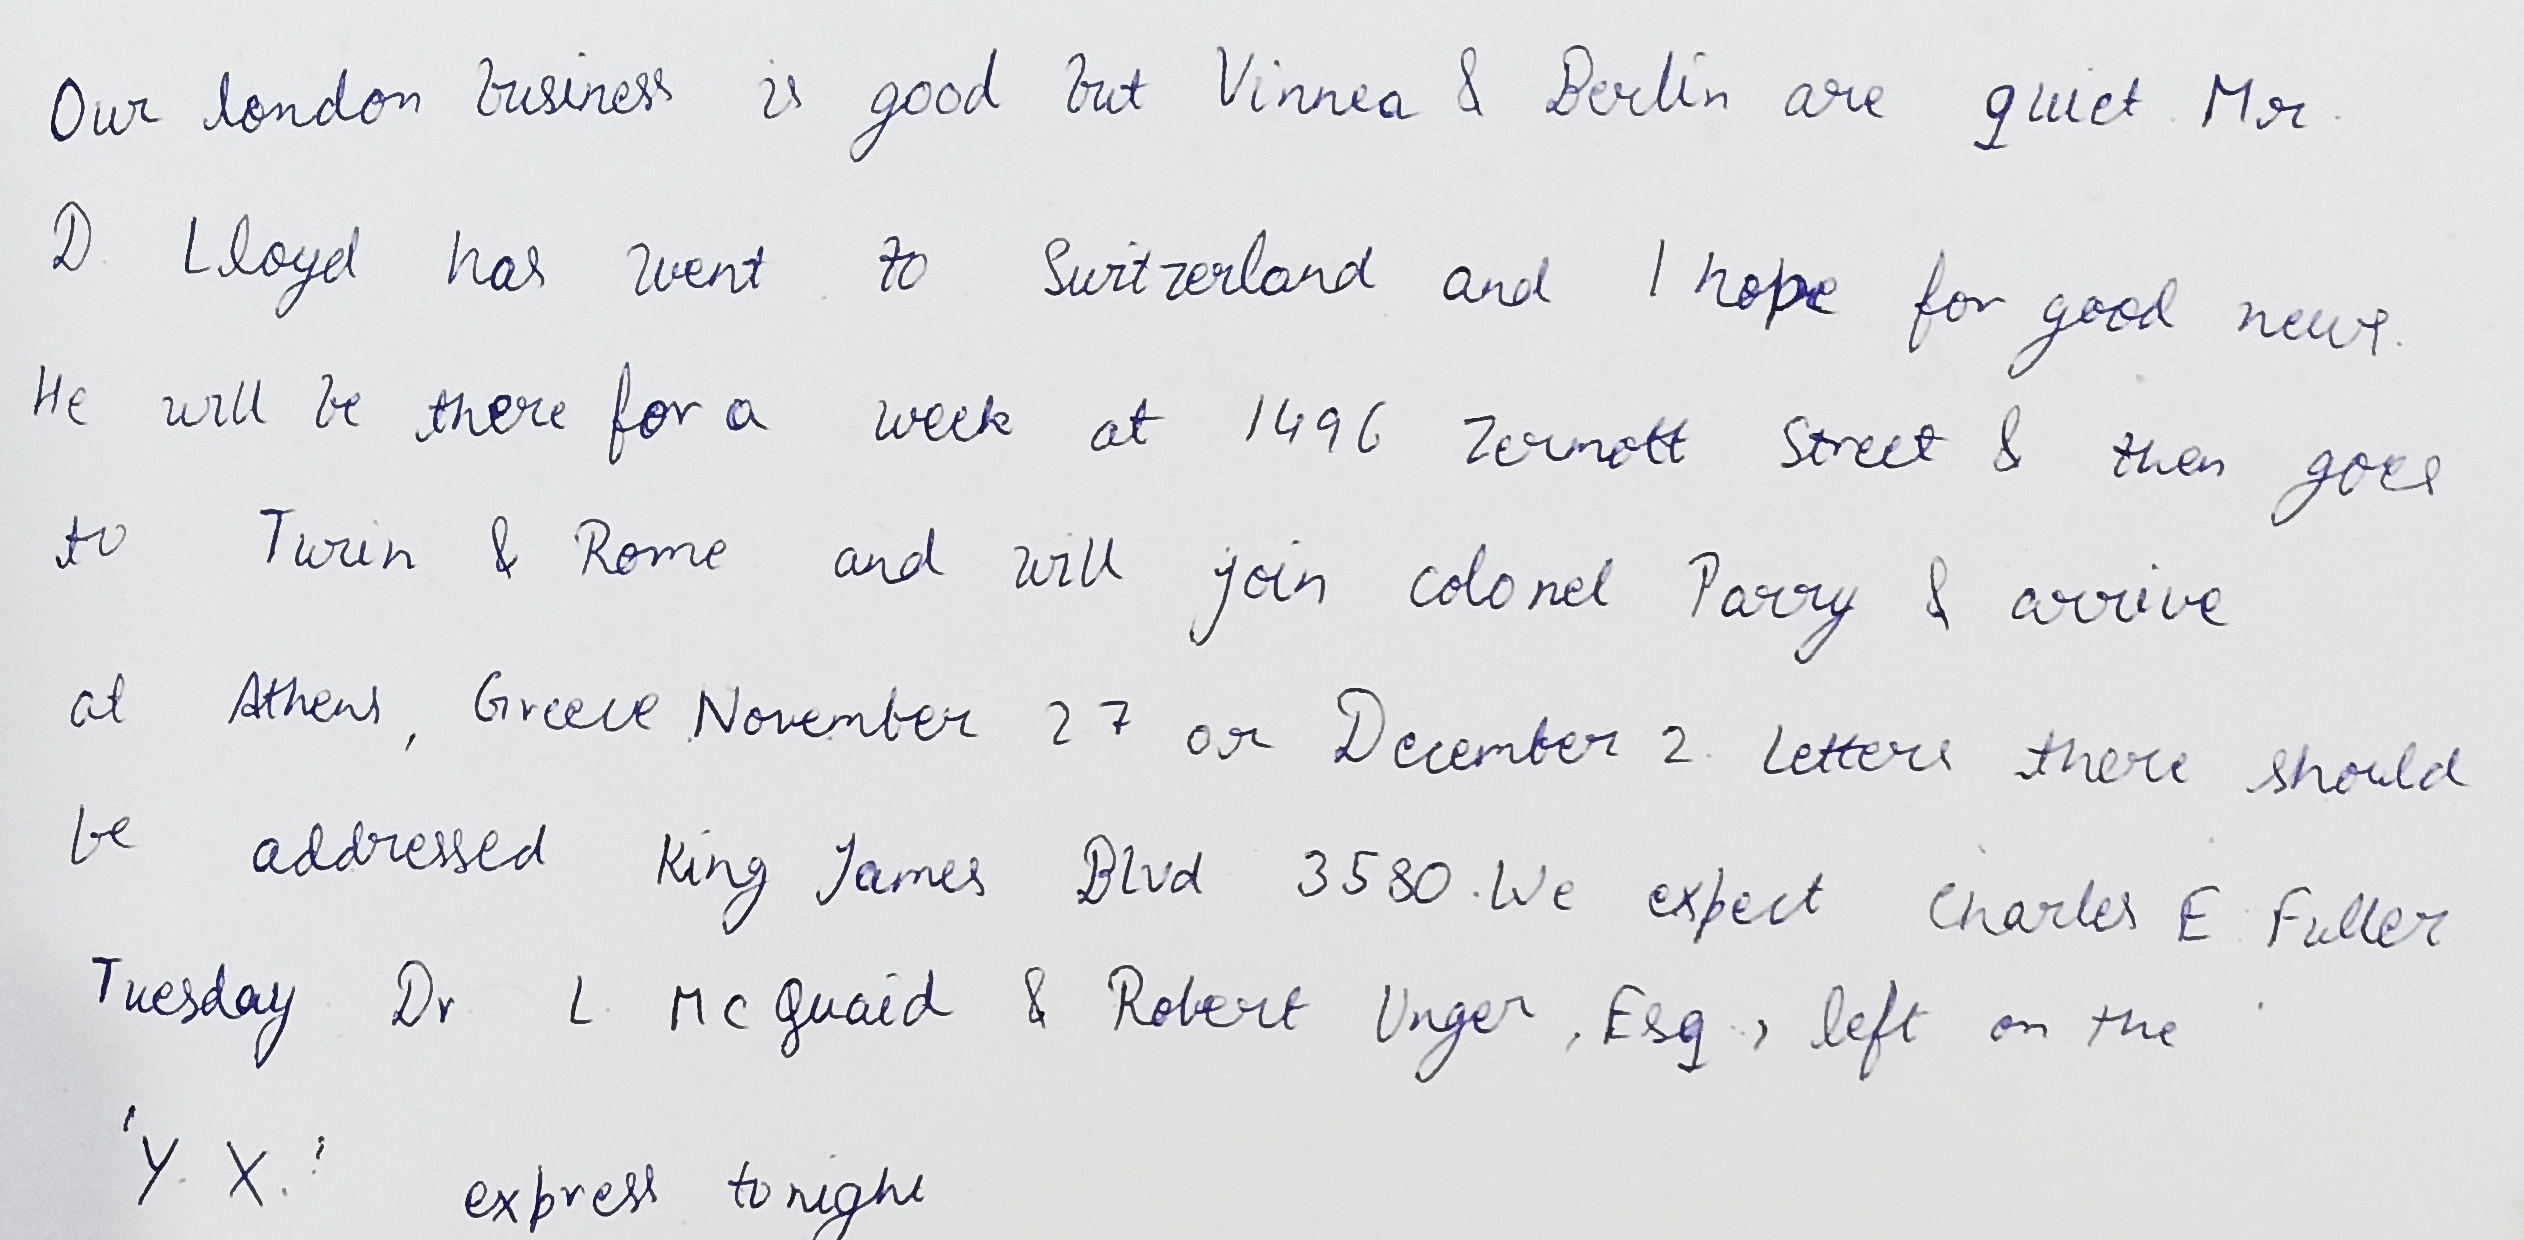 Our london business is good but Vinnea & Berlin are quiet. Mr.
D. Lloyd has went to Switzerland and I hope for good news.
He will be there for a week at 1496 Zermott Street & then goes
to Turin & Rome and will join colonel Parry & arrive
at Athens, Greece November 27 or December 2. Letters there should
be addressed King James Blvd 3580. We expect Charles E. Fuller
Tuesday. Dr. L. McQuaid & Robert Unger, Esq., left on the
'Y. X.' express tonight